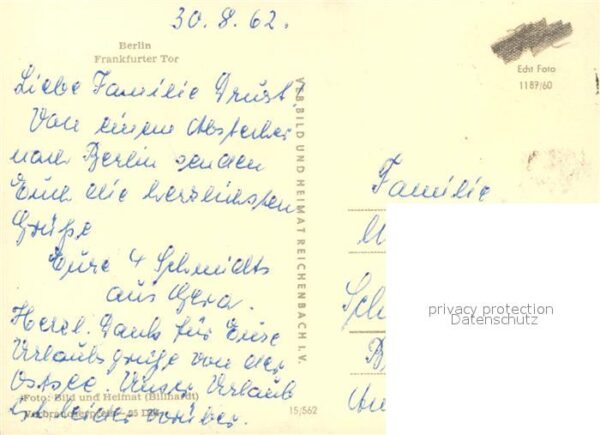 30.8.62.
Berlin
Frankfurter Tor
Liebe Familie Drust!
Von einem Abstecher
nach Berlin senden
Euch die herzlichsten
Grüße
Eure 4 Schmidts
aus Gera.
Herzl. Dank für Eure
Urlaubsgrüße von der
Ostsee. Unser Urlaub
ist leider vorüber.
Foto: Bild und Heimat (Billhardt)
Verbraucherpreis
15/562
VEB BILD UND HEIMAT REICHENBACH I. V.
Echt Foto
1187/60
Familie
privacy protection
Datenschutz